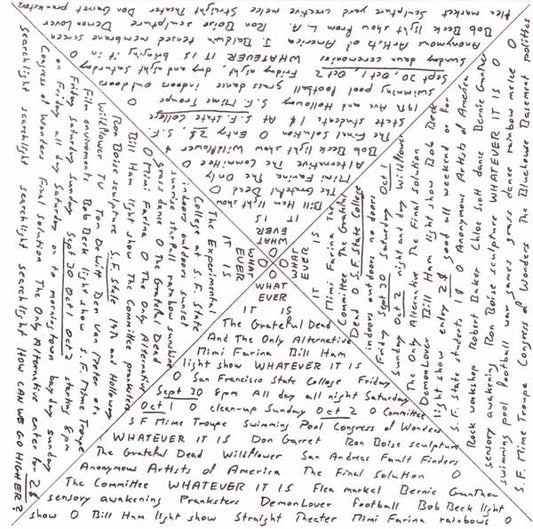 WHAT
EVER
IT
IS
Bill Ham light show
The Grateful Dead O
Mimi Farina The Only
Alternative The Committee O
Bob Beck light show Wildflower
The Final Solution O Entry 2$ S.F.
State students 1$ At S.F. State College
19th Ave and Holloway S.F. Mime Troupe
Swimming pool football grass dance indoors outdoors
Sept 30, Oct 1, Oct 2 Friday 8pm day and night Saturday
Sunday dawn ceremonies WHATEVER IT IS bring it in O
Anonymous Artists of America T. Baldwin tensed membrane screen
Bob Beck light show from L.A. Ron Boise sculpture DemonLover
flea market sculpture yard creative melee Straight Theater Don Garret pranksters
WHAT
EVER
IT
IS
Mimi Farina The
Committee The Grateful
Dead O S.F. State College
indoors outdoors no doors
Friday Sept 30 Saturday Oct 1
Sunday Oct 2 night and day Wildflower
The Only Alternative The Final Solution
DemonLover Bill Ham light show Bob Beck
light show entry 2$ good all weekend or for
S.F. State students 1$ O Anonymous Artists of America
Rock workshop Robert Baker Chloe Scott dance Bernie Gunther
sensory awakening Ron Boise sculpture WHATEVER IT IS O
swimming pool football war games grass dance rainbow melee O
S.F. Mime Troupe Congress of Wonders The Bluehouse Basement politics
WHAT
EVER
IT IS
The Grateful Dead
And The Only Alternative
Mimi Farina Bill Ham
light show WHATEVER IT IS
O San Francisco State College Friday
Sept 30 8pm All day all night Saturday
Oct 1 O clean-up Sunday Oct 2 O Committee
S F Mime Troupe Swimming Pool Congress of Wonders
WHATEVER IT IS Don Garret Ron Boise sculpture
The Grateful Dead Wildflower San Andreas Fault Finders
Anonymous Artists of America The Final Solution O
The Committee WHATEVER IT IS Flea market Bernie Gunther
sensory awakening Pranksters DemonLover football Bob Beck light
show O Bill Ham light show Straight Theater Mimi Farina rainbows O
WHAT
EVER
IT
IS
The Experimental
College at S.F. State
indoors outdoors sunset
sunrise starfall rainbow sunshine
grass dance O The Grateful Dead
O Mimi Farina O The Only Alternative
O Bill Ham light show The Committee pranksters
Ron Boise sculpture S.F. State 19th and Holloway
Wildflower TV Tom DeWitt Dan Van Meter etc
Film enviroments Bob Beck light show S.F. Mime Troupe
Friday Saturday Sunday Sept 30 Oct 1 Oct 2 starts 8pm
on Friday all day Saturday on to morningstown bay day sunday
Congress of Wonders Final Solution The Only Alternative enter for 2$
searchlight searchlight searchlight searchlight HOW CAN WE GO HIGHER?